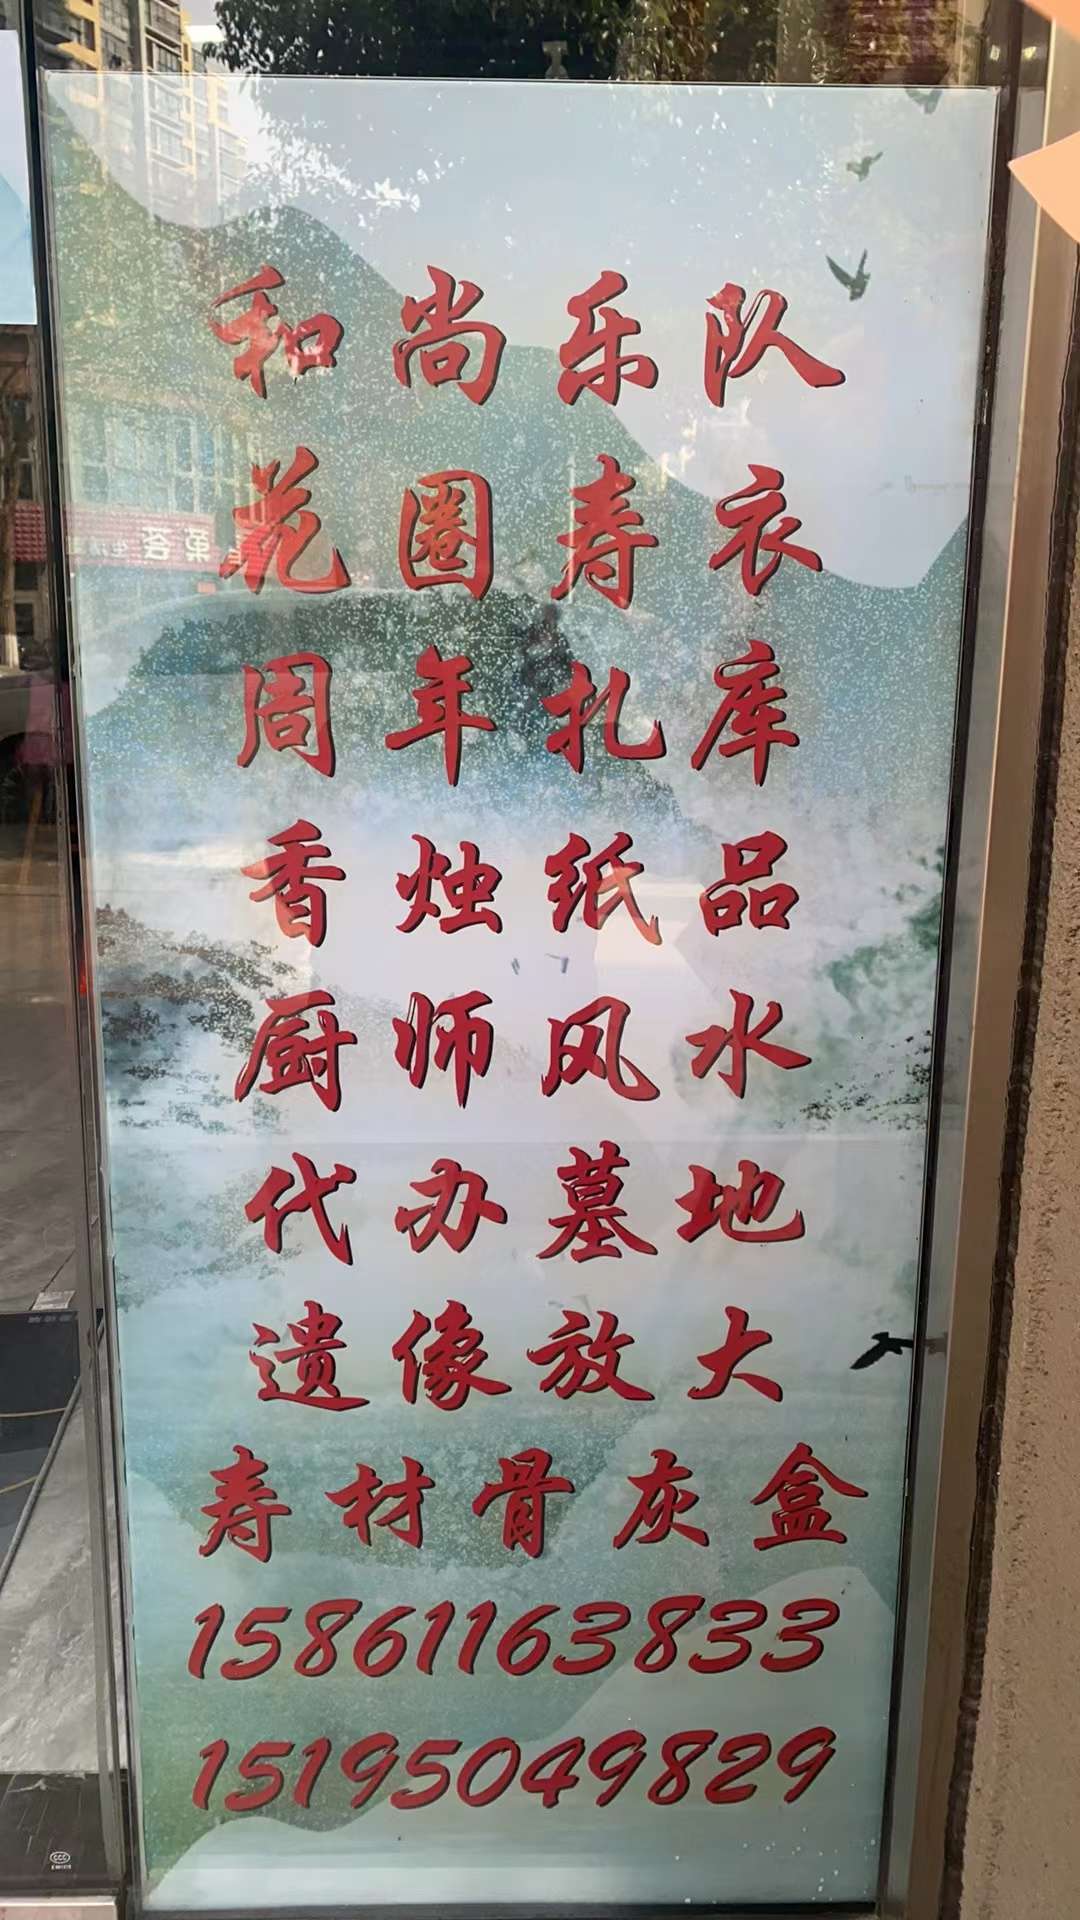 和尚乐队
花圈寿衣
周年扎库
香烛纸品
厨师风水
代办墓地
遗像放大
寿材骨灰盒
15861163833
15195049829